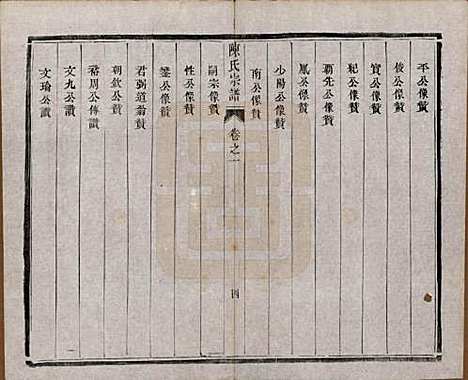 平公像贊
俊公像贊
實公像贊
紀公像贊
霸先公像贊
胤公像贊
少陽公像贊
南公像贊
陳氏宗譜
卷之一
四
嗣宗像贊
性公像贊
鎣公像贊
君弼道翁贊
朝欽公贊
裕周公傳讃
文九公讃
文瑜公讃